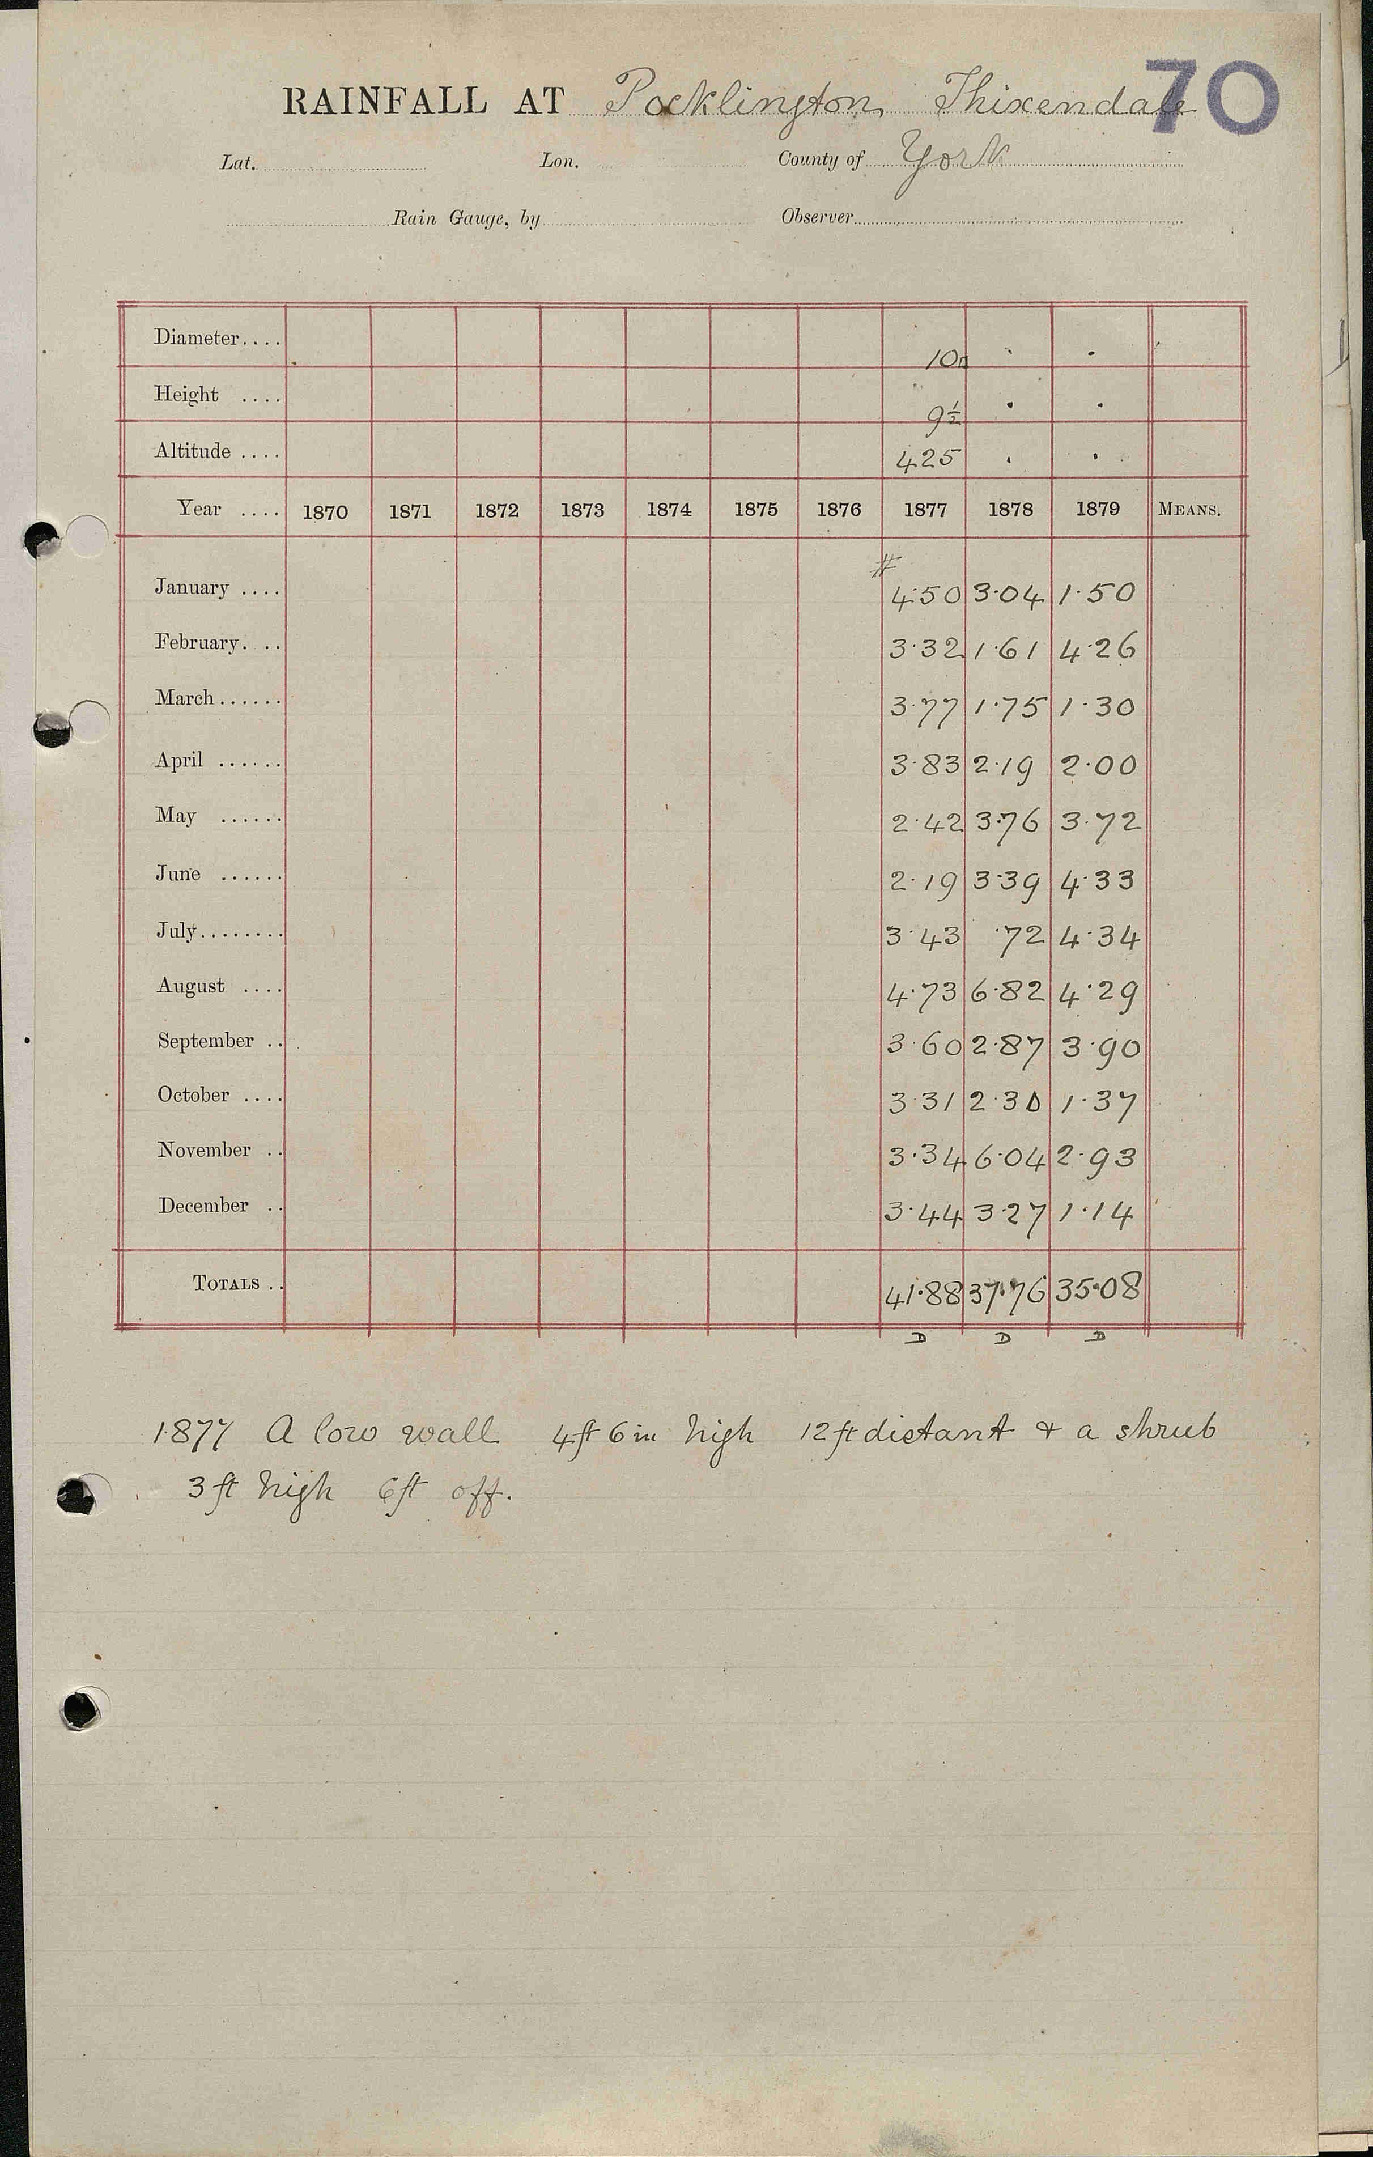 70
RAINFALL AT Pocklington, Thixendale
Lat. Lon. County of York
Rain Gauge, by Observer
Diameter.... 10in
Height .... 9½
Altitude .... 425
Year .... 1870 1871 1872 1873 1874 1875 1876 1877 1878 1879 MEANS.
#
January .... 4.50 3.04 1.50
February.... 3.32 1.61 4.26
March...... 3.77 1.75 1.30
April ...... 3.83 2.19 2.00
May ...... 2.42 3.76 3.72
June ...... 2.19 3.39 4.33
July........ 3.43 .72 4.34
August .... 4.73 6.82 4.29
September .. 3.60 2.87 3.90
October .... 3.31 2.30 1.37
November .. 3.34 6.04 2.93
December .. 3.44 3.27 1.14
TOTALS .. 41.88 37.76 35.08
D D D
1877 A low wall 4ft 6in high 12ft distant & a shrub
3ft high 6ft off.